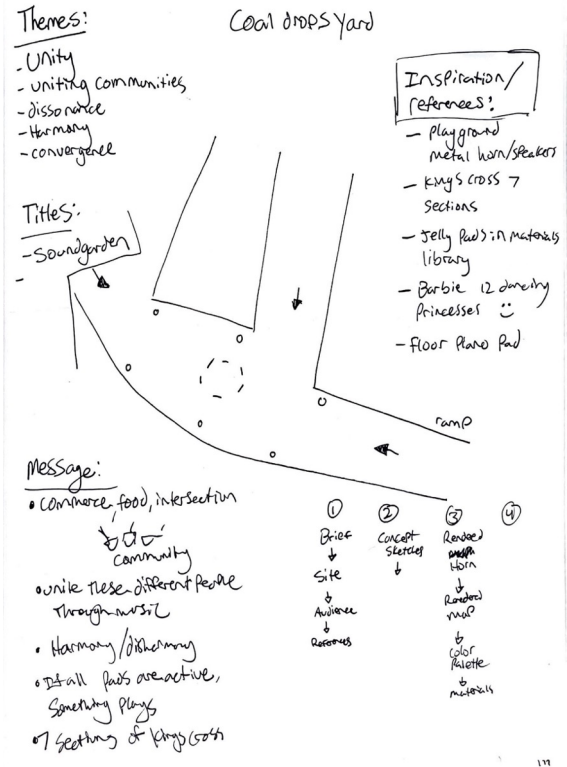 Coal drops yard
Themes:
- Unity
- uniting communities
- dissonance
- Harmony
- convergence
Titles:
- Soundgarden
-
Inspiration/
references:
- Playground
metal horn/speakers
- Kings cross 7
Sections
- Jelly Pads in materials
library
- Barbie 12 dancing
Princesses
- floor Piano Pad
ramp
Message:
• commerce, food, intersection
community
• unite these different people
through music
• Harmony/disharmony
• If all pads are active,
something plays
• 7 of Kings
① Brief
Site
Audience
References
② Concept
Sketches
③ Rendered
Horn
Rendered
map
Color
Palette
materials
④